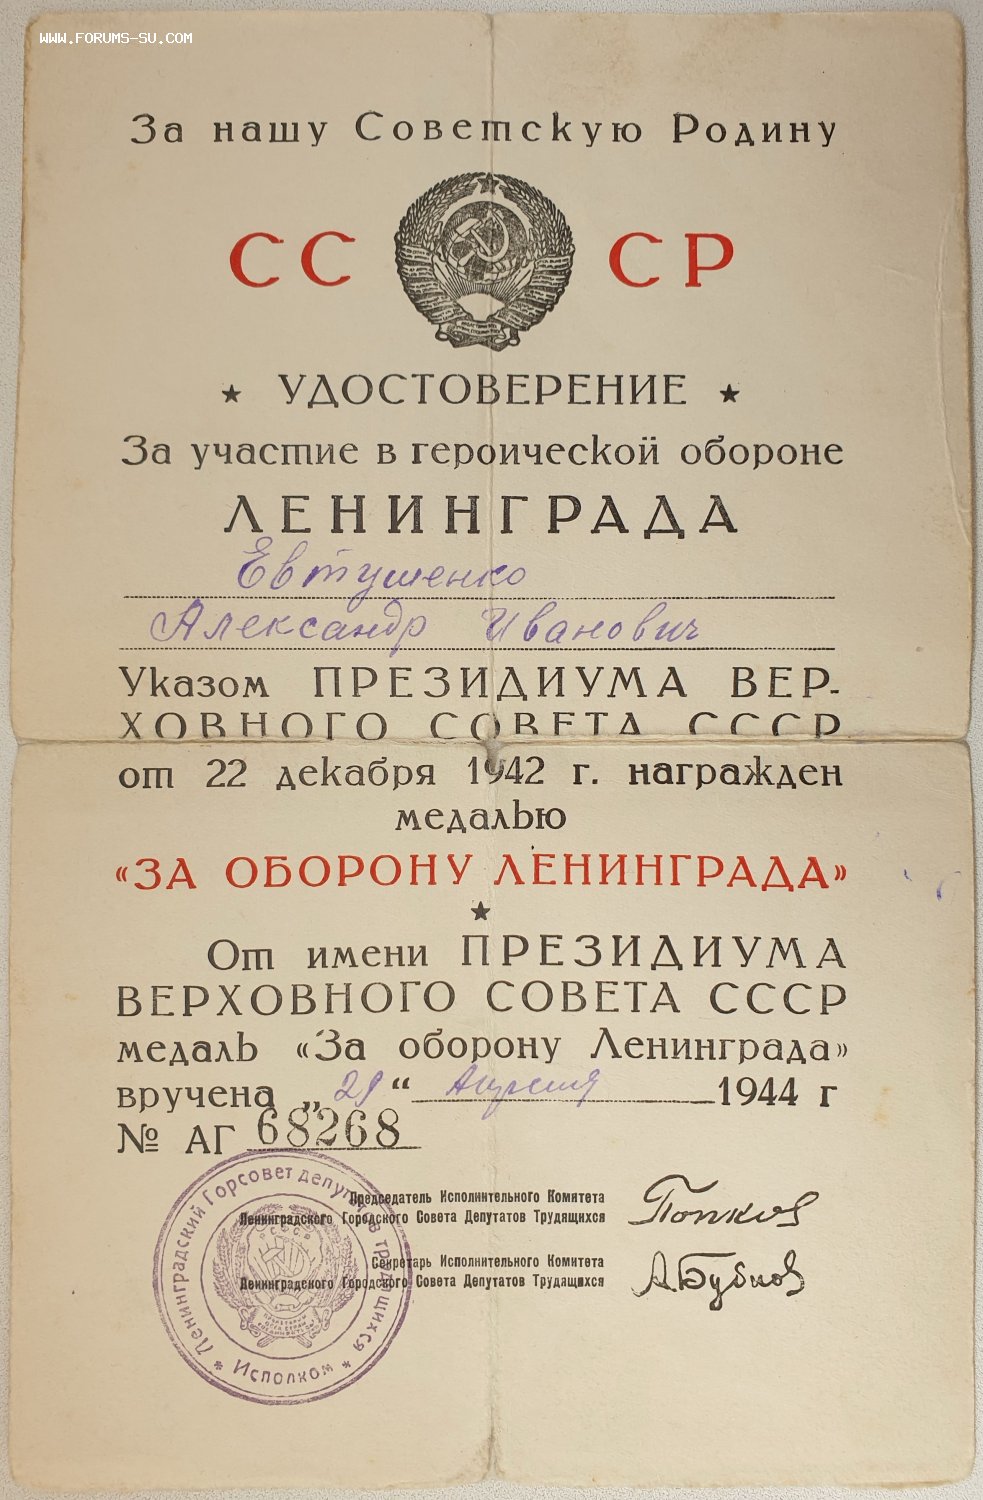 WWW.FORUMS-SU.COM
За нашу Советскую Родину
СС СР
★ УДОСТОВЕРЕНИЕ ★
За участие в героической обороне
ЛЕНИНГРАДА
Евтушенко
Александр Иванович
Указом ПРЕЗИДИУМА ВЕР-
ХОВНОГО СОВЕТА СССР
от 22 декабря 1942 г. награжден
медалью
«ЗА ОБОРОНУ ЛЕНИНГРАДА»
★
От имени ПРЕЗИДИУМА
ВЕРХОВНОГО СОВЕТА СССР
медаль «За оборону Ленинграда»
вручена „29“ Апреля 1944 г
№ АГ 68268
Председатель Исполнительного Комитета
Ленинградского Городского Совета Депутатов Трудящихся
Попков
Секретарь Исполнительного Комитета
Ленинградского Городского Совета Депутатов Трудящихся
А.Бубнов
Ленинградский Горсовет депутатов трудящихся
* Исполком *